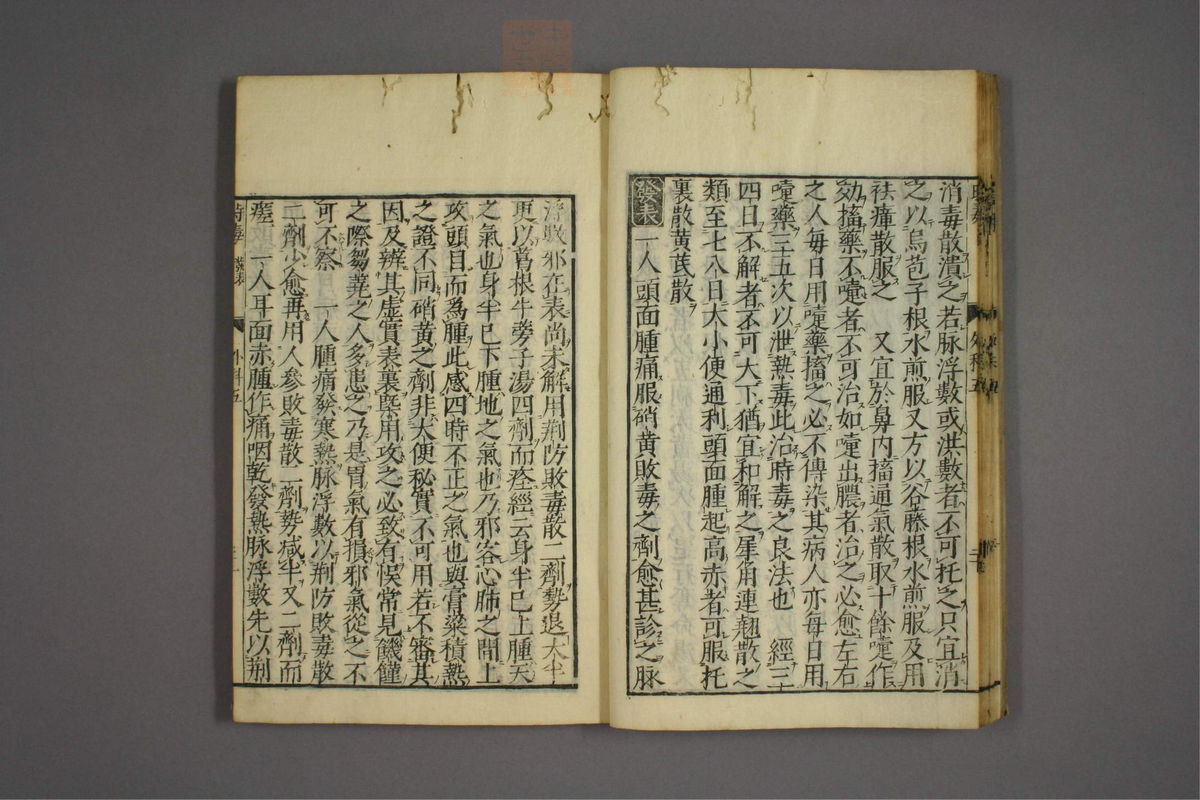 消毒散潰之若脉浮數或洪數者不可托之只宜消
之以烏苞子根水煎服又方以谷藤根水煎服及用
祛瘴散服之　又宜於鼻内搐通氣散取十餘嚏作
効搐藥不嚏者不可治如嚏出膿者治之必愈左右
之人每日用嚏藥搐之必不傳染其病人亦每日用
嚏藥三五次以泄熱毒此治時毒之良法也　經三
四日不解者不可大下猶宜和解之犀角連翹散之
類至七八日大小便通利頭面腫起高赤者可服托
裏散黄芪散
發表　一人頭面腫痛服硝黄敗毒之劑愈甚診之脉
浮數邪在表尚未解用荆防敗毒散二劑勢退大半
更以葛根牛旁子湯四劑而痊經云身半已上腫天
之氣也身半已下腫地之氣也乃邪客心肺之間上
攻頭目而為腫此感四時不正之氣也與膏粱積熱
之證不同硝黄之劑非大便秘實不可用若不審其
因及辨其虚實表裏槩用攻之必致有悞常見饑饉
之際芻蕘之人多患之乃是胃氣有損邪氣從之不
可不察　一人腫痛發寒熱脉浮數以荆防敗毒散
二劑少愈再用人參敗毒散二劑勢减半又二劑而
痊　一人耳面赤腫作痛咽乾發熱脉浮數先以荆
時毒　發表　外科五
外科五